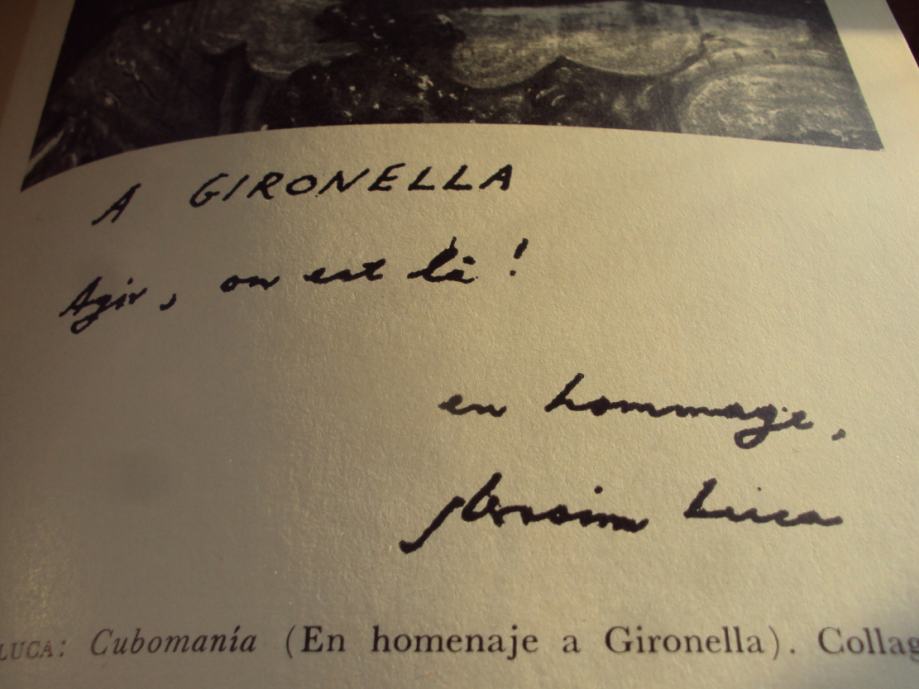 A GIRONELLA
Agir, on est là !
en hommage,
Gherasim Luca
LUCA: Cubomanía (En homenaje a Gironella). Collag